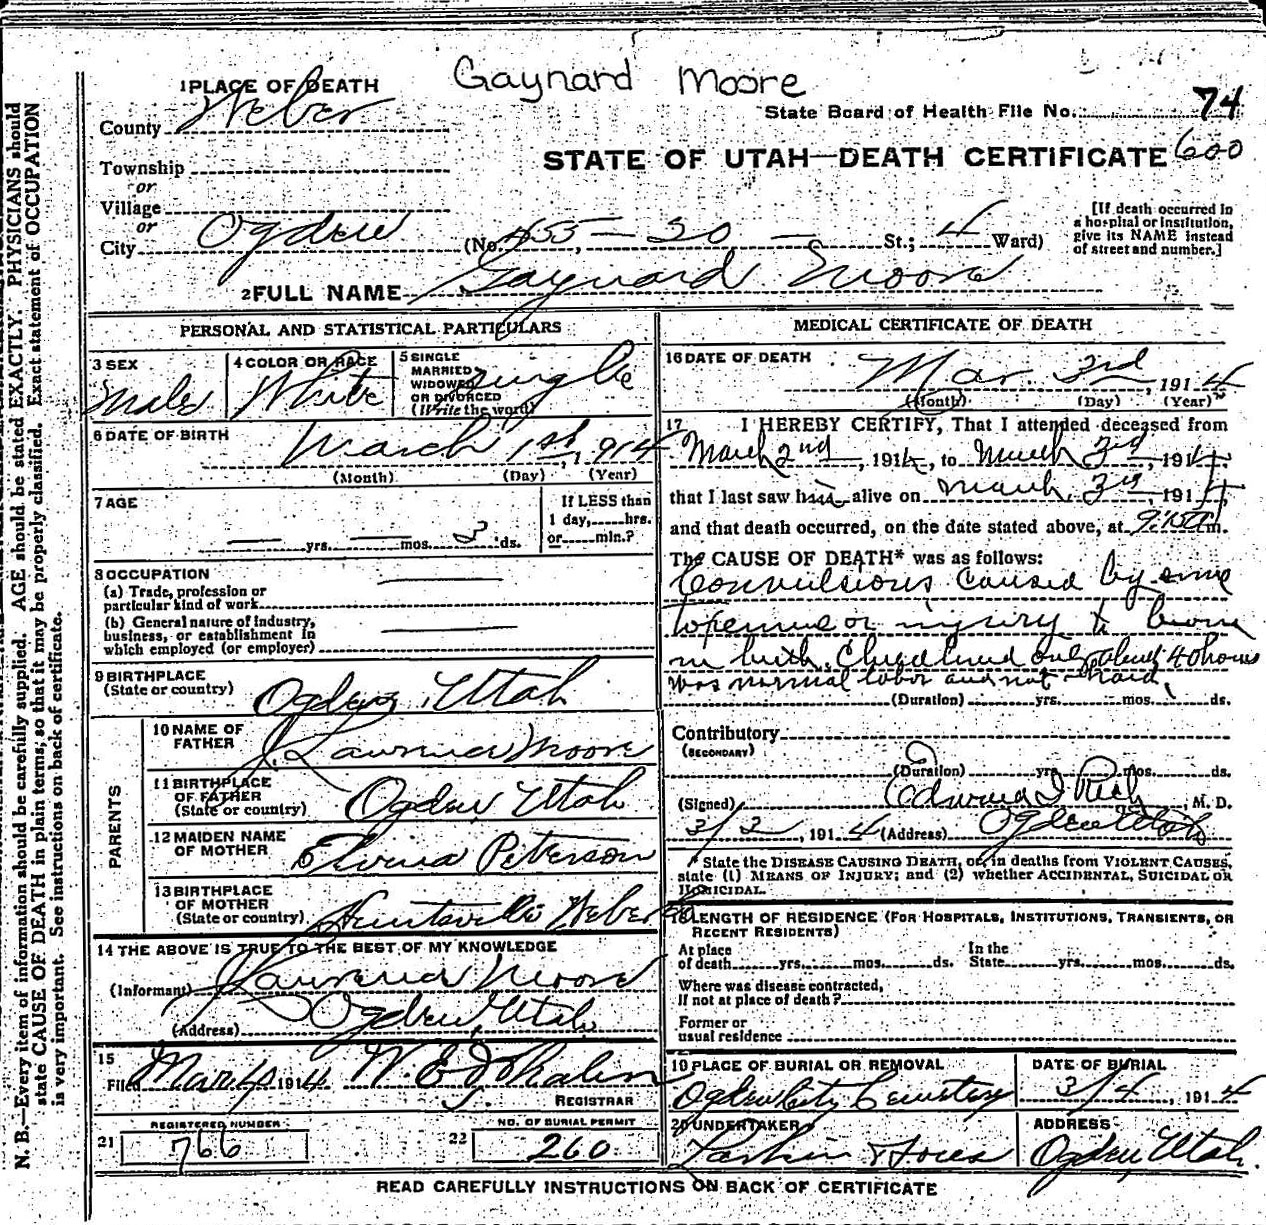 Gaynard Moore
1 PLACE OF DEATH
State Board of Health File No. 74
County Weber
STATE OF UTAH—DEATH CERTIFICATE 600
Township
or
Village
or
City Ogden (No. 455 - 20 - St.; 4 Ward)
[If death occurred in
a hospital or institution,
give its NAME instead
of street and number.]
2 FULL NAME Gaynard Moore
PERSONAL AND STATISTICAL PARTICULARS
3 SEX
Male
4 COLOR OR RACE
White
5 SINGLE
MARRIED
WIDOWED
OR DIVORCED
(Write the word)
Single
6 DATE OF BIRTH
March 1st, 1914
(Month) (Day) (Year)
7 AGE
yrs. mos. 3 ds.
If LESS than
1 day, hrs.
or min.?
8 OCCUPATION
(a) Trade, profession or
particular kind of work
(b) General nature of industry,
business, or establishment in
which employed (or employer)
9 BIRTHPLACE
(State or country) Ogden, Utah
PARENTS
10 NAME OF
FATHER J. Lawrence Moore
11 BIRTHPLACE
OF FATHER
(State or country) Ogden Utah
12 MAIDEN NAME
OF MOTHER Elvina Peterson
13 BIRTHPLACE
OF MOTHER
(State or country) Huntsville Weber Co
14 THE ABOVE IS TRUE TO THE BEST OF MY KNOWLEDGE
(Informant) J Lawrence Moore
(Address) Ogden, Utah
15
Filed Mar 4, 1914 W. E.
REGISTRAR
REGISTERED NUMBER
21 766
NO. OF BURIAL PERMIT
22 260
MEDICAL CERTIFICATE OF DEATH
16 DATE OF DEATH
Mar. 3rd, 1914
(Month) (Day) (Year)
17 I HEREBY CERTIFY, That I attended deceased from
March 2nd, 1914, to March 3rd, 1914,
that I last saw him alive on March 3rd, 1914,
and that death occurred, on the date stated above, at 9:15 a m.
The CAUSE OF DEATH* was as follows:
Convulsions caused by some
injury to
in birth. Child lived only about 40 hours
was normal labor and not hard
(Duration) yrs. mos. ds.
Contributory
(SECONDARY)
(Duration) yrs. mos. ds.
(Signed) Edward I Rich, M. D.
3/2, 1914 (Address) Ogden Utah
* State the DISEASE CAUSING DEATH, or, in deaths from VIOLENT CAUSES,
state (1) MEANS OF INJURY; and (2) whether ACCIDENTAL, SUICIDAL OR
HOMICIDAL.
18 LENGTH OF RESIDENCE (FOR HOSPITALS, INSTITUTIONS, TRANSIENTS, OR
RECENT RESIDENTS)
At place
of death yrs. mos. ds.
In the
State yrs. mos. ds.
Where was disease contracted,
if not at place of death?
Former or
usual residence
19 PLACE OF BURIAL OR REMOVAL
Ogden City Cemetery
DATE OF BURIAL
3/4, 1914
20 UNDERTAKER
Larkin & Sons
ADDRESS
Ogden, Utah.
READ CAREFULLY INSTRUCTIONS ON BACK OF CERTIFICATE
N. B.—Every item of information should be carefully supplied. AGE should be stated EXACTLY. PHYSICIANS should
state CAUSE OF DEATH in plain terms, so that it may be properly classified. Exact statement of OCCUPATION
is very important. See instructions on back of certificate.